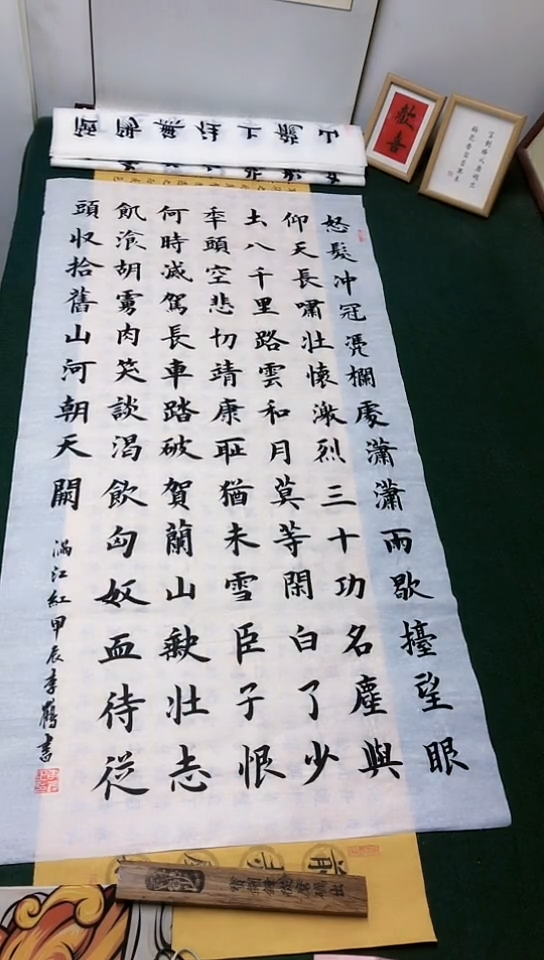 怒髮冲冠凴欄處瀟瀟雨歇擡望眼
仰天長嘯壯懷激烈三十功名塵與
土八千里路雲和月莫等閑白了少
秊頭空悲切靖康耻猶未雪臣子恨
何時滅駕長車踏破賀蘭山缺壯志
飢飡胡虜肉笑談渴飲匈奴血待從
頭収拾舊山河朝天闕
滿江紅甲辰李鶴書
歡喜